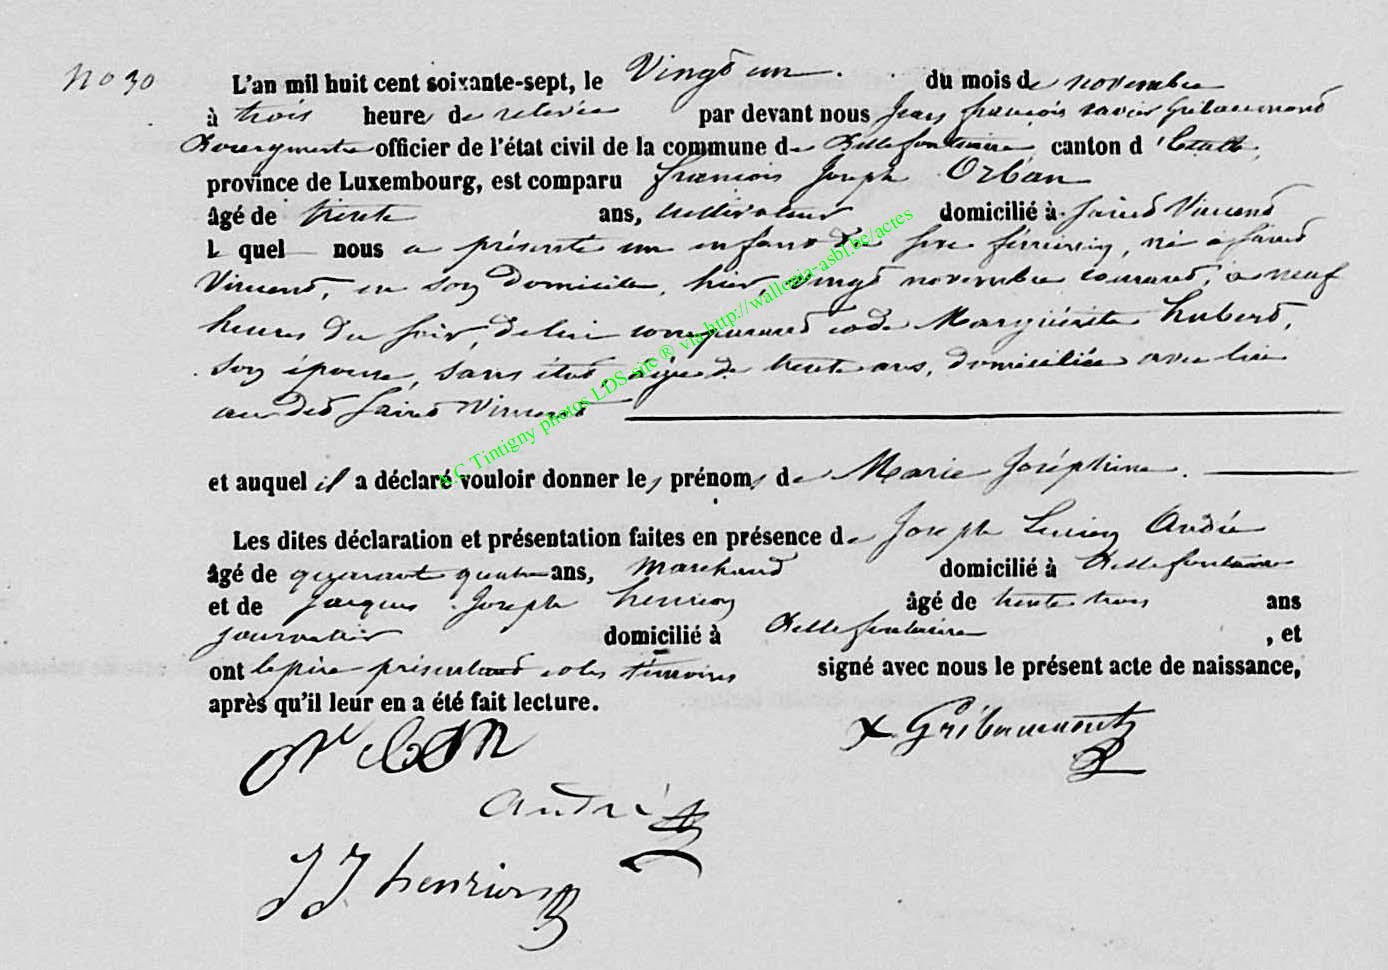 No 30
L'an mil huit cent soixante-sept, le Vingt un du mois de novembre
à trois heures de relevée par devant nous Jean françois xavier Gribaumont
Bourgmestre officier de l'état civil de la commune de Bellefontaine, canton d'Etalle,
province de Luxembourg, est comparu françois Joseph Orban
âgé de trente ans, cultivateur domicilié à Saint Vincent
lequel nous a présenté un enfant de sexe féminin, né à Saint
Vincent, en son domicile, hier, vingt novembre courant, à neuf
heures du soir, de lui comparant et de Marguérite hubert,
son épouse, sans état, âgée de trente ans, domiciliée avec lui
au dit Saint Vincent
et auquel il a déclaré vouloir donner les prénoms de Marie Joséphine.
Les dites déclaration et présentation faites en présence de Joseph Lucien André
âgé de quarante quatre ans, Marchand domicilié à Bellefontaine
et de Jacques Joseph henrion âgé de trente trois ans
journalier domicilié à Bellefontaine, et
ont le père présentant et les témoins signé avec nous le présent acte de naissance,
après qu'il leur en a été fait lecture.
x Gribaumont
André
J J henrion
A.C Tintigny photos LDS site ® via http://wallonia-asbl.be/actes